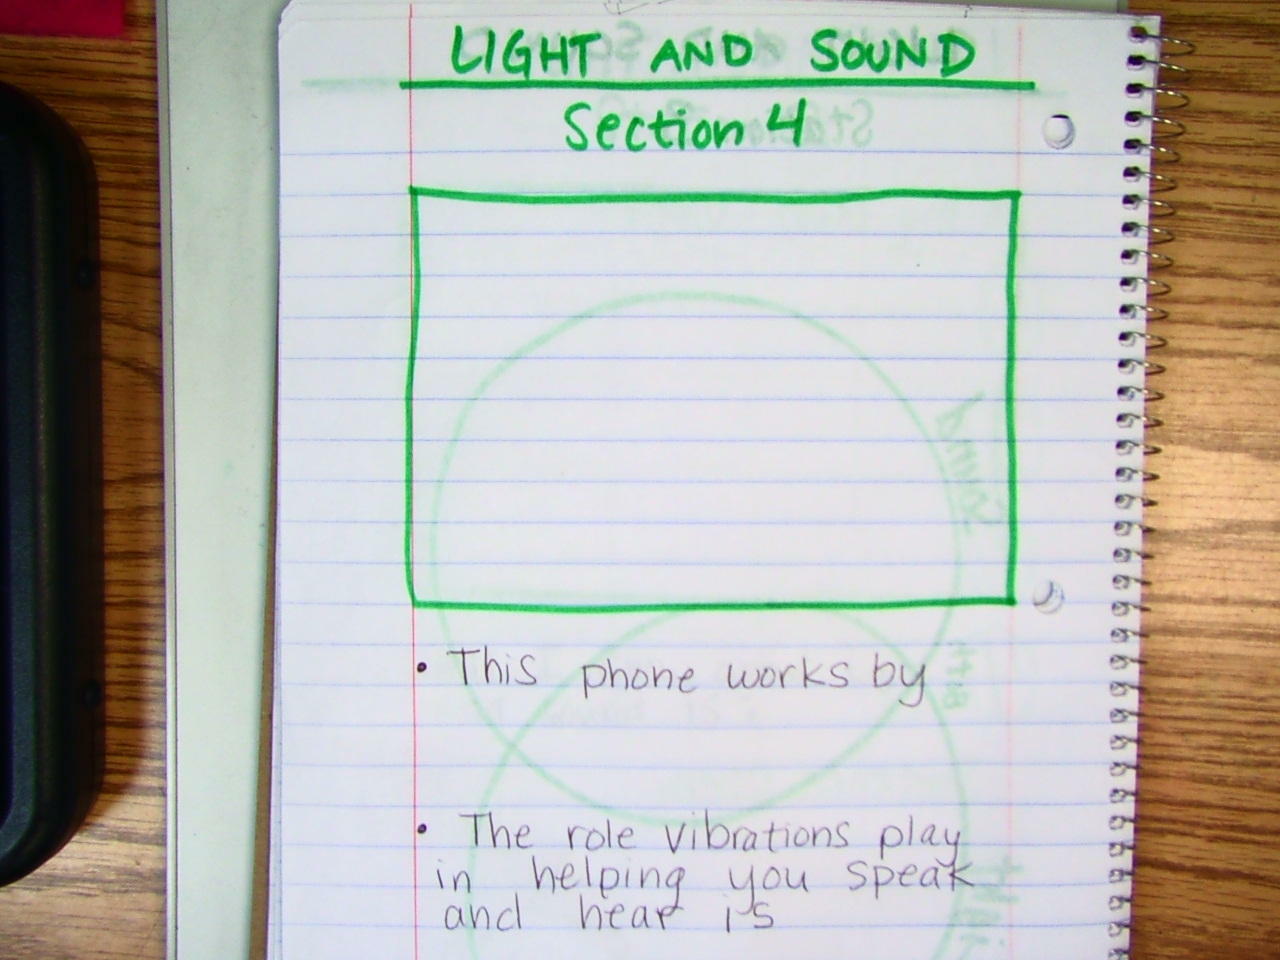 LIGHT AND SOUND
Section 4
• This phone works by
• The role vibrations play
in helping you speak
and hear is